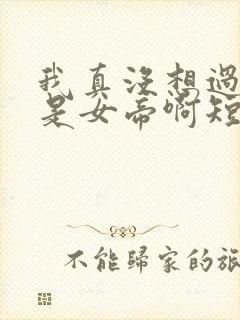 我真没想过
是女帝啊短
不能歸家的旅